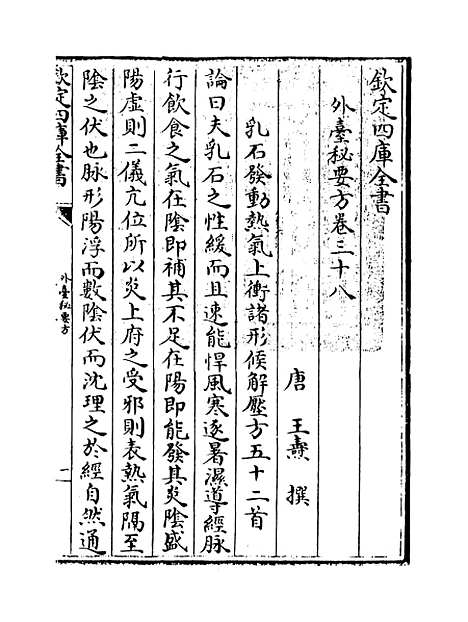 欽定四庫全書
外臺秘要方卷三十八
唐 王燾 撰
乳石發動熱氣上衝諸形候解壓方五十二首
論曰夫乳石之性緩而且速能悍風寒逐暑濕導經脉
行飲食之氣在陰即補其不足在陽即能發其炎陰盛
陽虛則二儀亢位所以炎上府之受邪則表熱氣隔至
陰之伏也脉形陽浮而數陰伏而沈理之於經自然通
欽定四庫全書
外臺秘要方